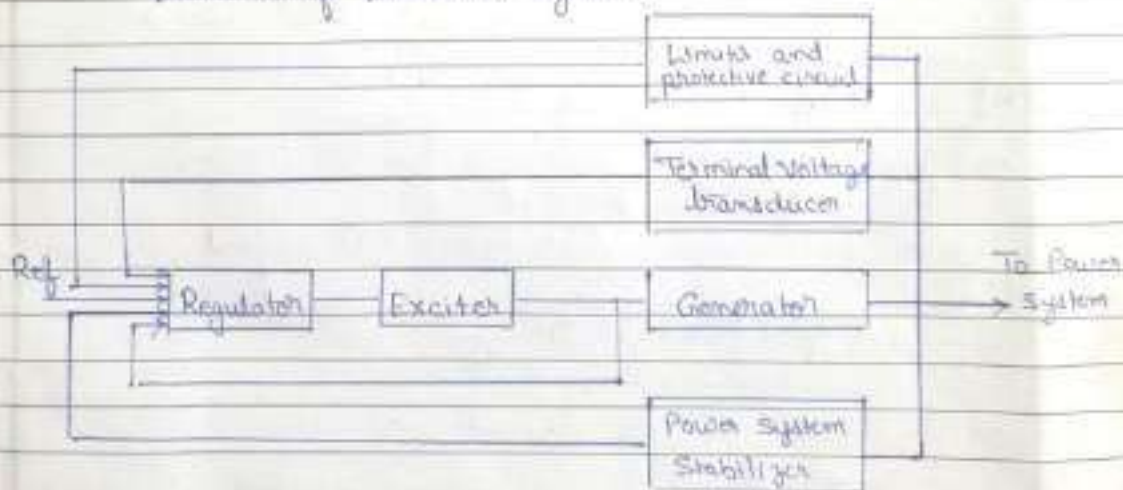 Limits and
protective circuit
Terminal Voltage
transducer
Ref
Regulator
Exciter
Generator
To Power
system
Power System
Stabilizer